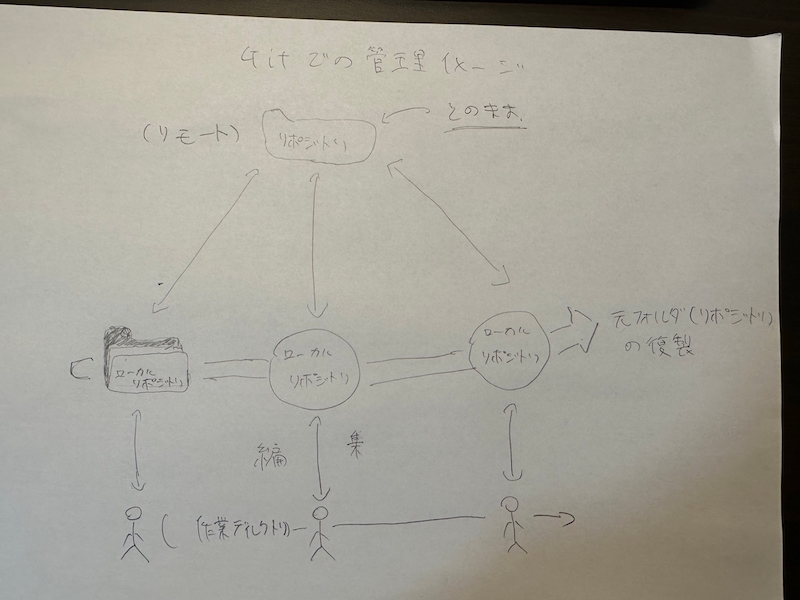 Gitでの管理イメージ
(リモート)
リポジトリ
そのまま.
ローカル
リポジトリ
ローカル
リポジトリ
ローカル
リポジトリ
元フォルダ(リポジトリ)
の複製
編集
(作業ディレクトリ)